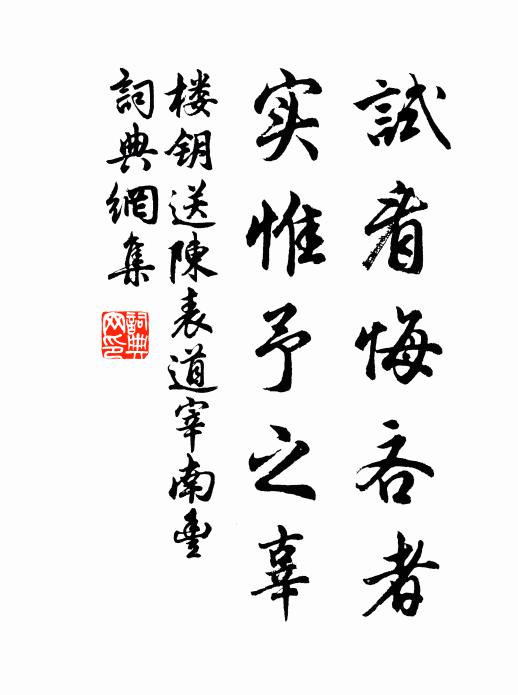 試看悔吝者
实惟予之辜
楼钥送陳表道宰南豐
詞典網集
詞典網印